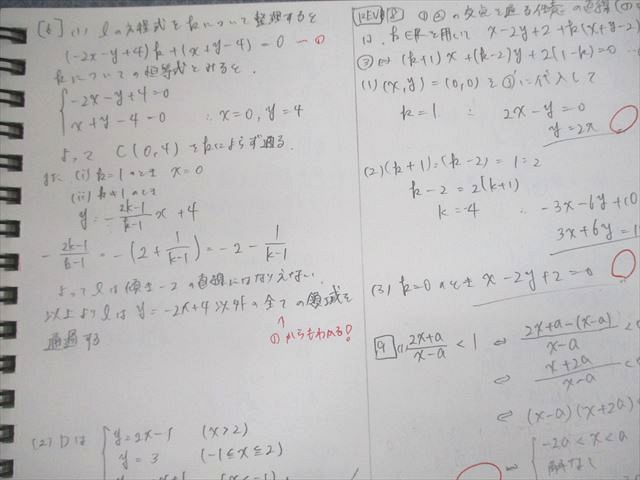 [6] (1) lの方程式をkについて整理すると
(-2x-y+4)k+(x+y-4)=0 ―①
kについての恒等式とみると.
{-2x-y+4=0
x+y-4=0 ∴x=0, y=4
よって C(0,4)をkによらず通る.
また (i) k=1のとき x=0
(ii) k≠1のとき
y=-\frac{2k-1}{k-1}x+4
-\frac{2k-1}{k-1}=-(2+\frac{1}{k-1})=-2-\frac{1}{k-1}
よってlは傾き-2の直線にはなりえない.
以上よりlは y=-2x+4以外の全ての領域を
通過する
↑
①からもわかる!
(2) Dは {y=2x-1 (x>2)
y=3 (-1≦x≦2)
REVIEW 8 ①②の交点を通る任意の直線(②
は. k∈Rを用いて x-2y+2+k(x+y-2)
③⇔(k+1)x+(k-2)y+2(1-k)=0
(1) (x,y)=(0,0)を③'に代入して
k=1 ∴ 2x-y=0
y=2x
(2) (k+1):(k-2)=1:2
k-2=2(k+1)
k=-4 ∴ -3x-6y+10
3x+6y=1
(3) k=0のとき x-2y+2=0
9 (1) \frac{2x+a}{x-a}<1 ⇔ \frac{2x+a-(x-a)}{x-a}<
⇔ \frac{x+2a}{x-a}<0
⇔ (x-a)(x+2a)<
⇔ {-2a<x<a
解なし